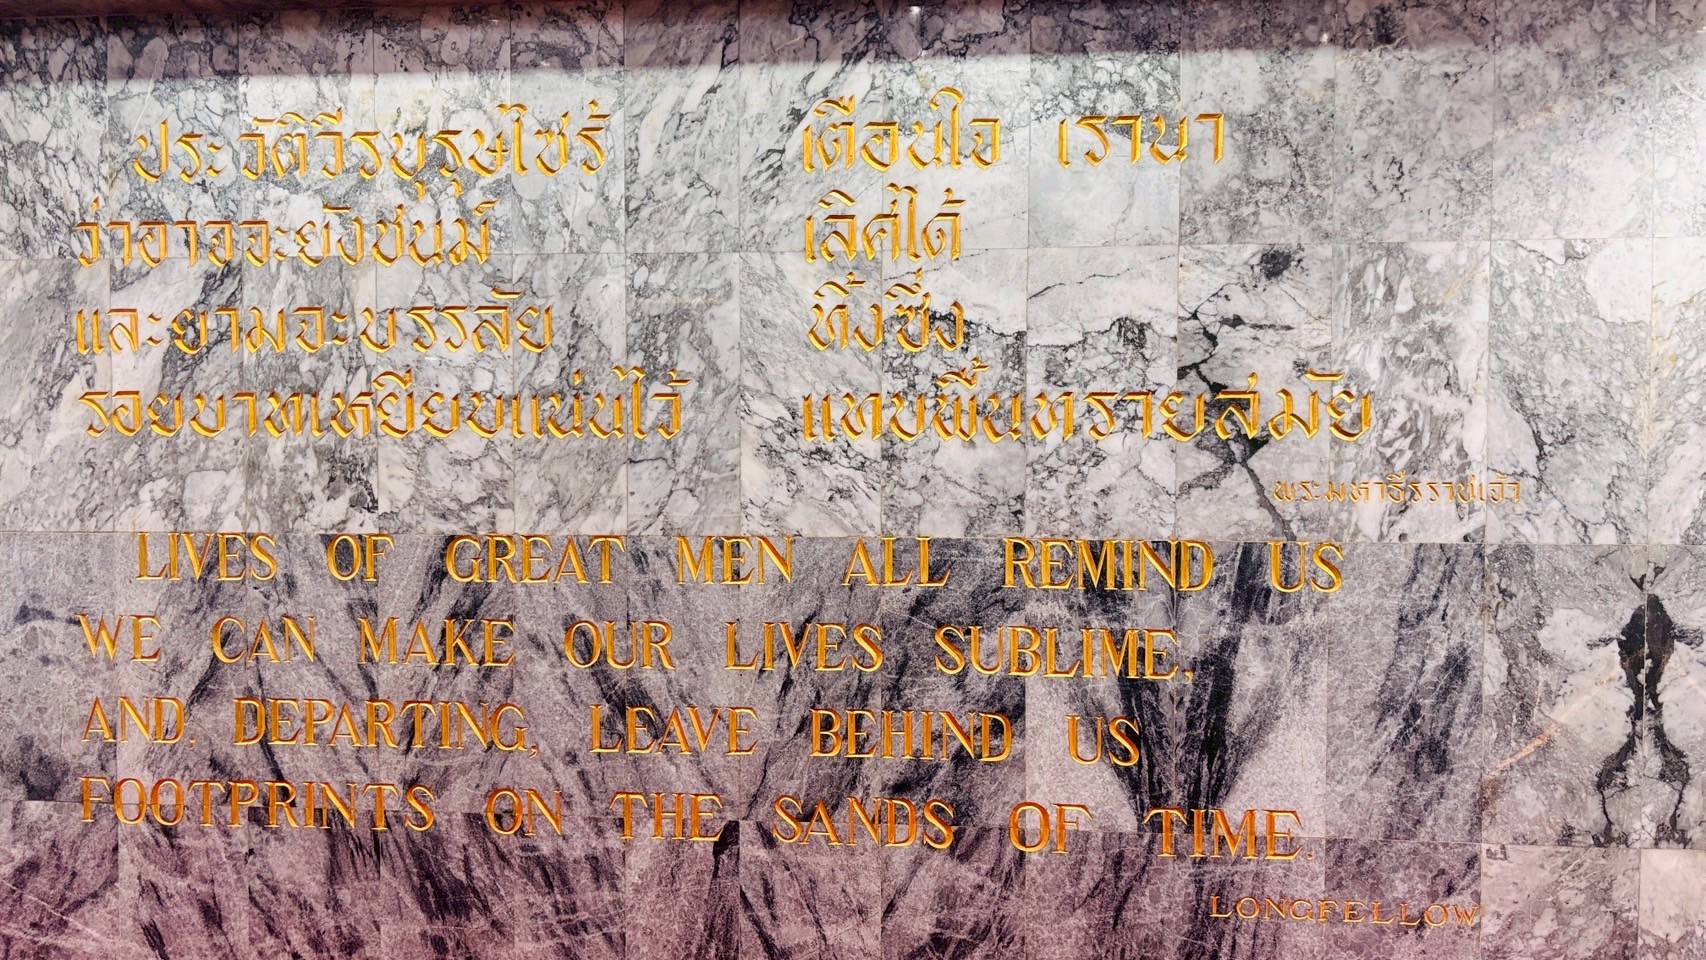 ประวัติวีรบุรุษไซร้ เตือนใจ เรานา
ว่าอาจจะยังชนม์ เลิศได้
และยามจะบรรลัย ทิ้งซึ่ง
รอยบาทเหยียบแน่นไว้ แทบพื้นทรายสมัย
พระมหาธีรราชเจ้า
LIVES OF GREAT MEN ALL REMIND US
WE CAN MAKE OUR LIVES SUBLIME,
AND, DEPARTING, LEAVE BEHIND US
FOOTPRINTS ON THE SANDS OF TIME.
LONGFELLOW